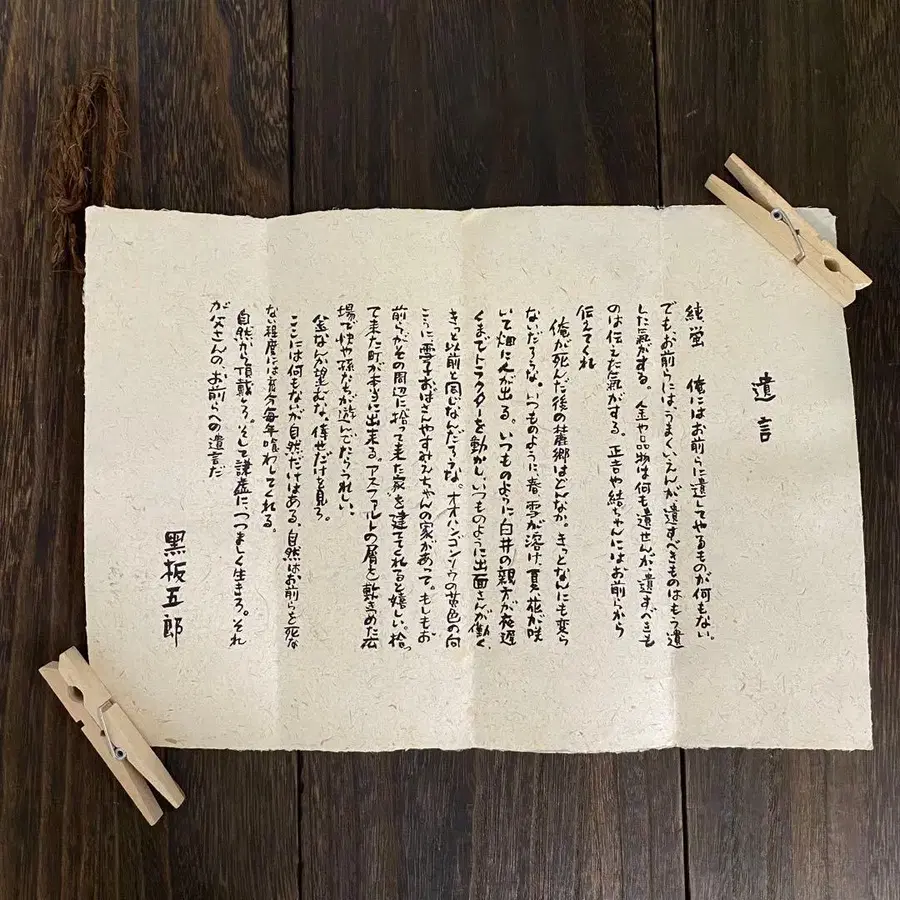 遺言
純 蛍　俺にはお前らに遺してやるものが何もない。
でも、お前らには、うまくいえんが遺すべきものはもう遺
した氣がする。金や品物は何も遺せんが、遺すべきも
のは伝えた氣がする。正吉や結ちゃんにはお前らから
伝えてくれ
俺が死んだ後の麓郷はどんなか。きっとなんにも変ら
ないだろうな。いつものように、春、雪が溶け、夏、花が咲
いて畑に人が出る。いつものように白井の親方が夜遅
くまでトラクターを動かし、いつものように出面さんが働く。
きっと以前と同じなんだろうな。オオハンゴンソウの黄色の向
こうに雪子おばさんやすみえちゃんの家があって。もしもお
前らがその周辺に拾って来た家を建ててくれると嬉しい。拾っ
て来た町が本当に出来る。アスファルトの屑を敷きつめた広
場で快や孫たちが遊んでたらうれしい。
金なんか望むな。倖せだけを見ろ。
ここには何もないが自然だけはある。自然はお前らを死な
ない程度には充分毎年喰わしてくれる。
自然から頂戴しろ。そして謙虚に、つつましく生きろ。それ
が父さんの、お前らへの遺言だ
黒板五郎